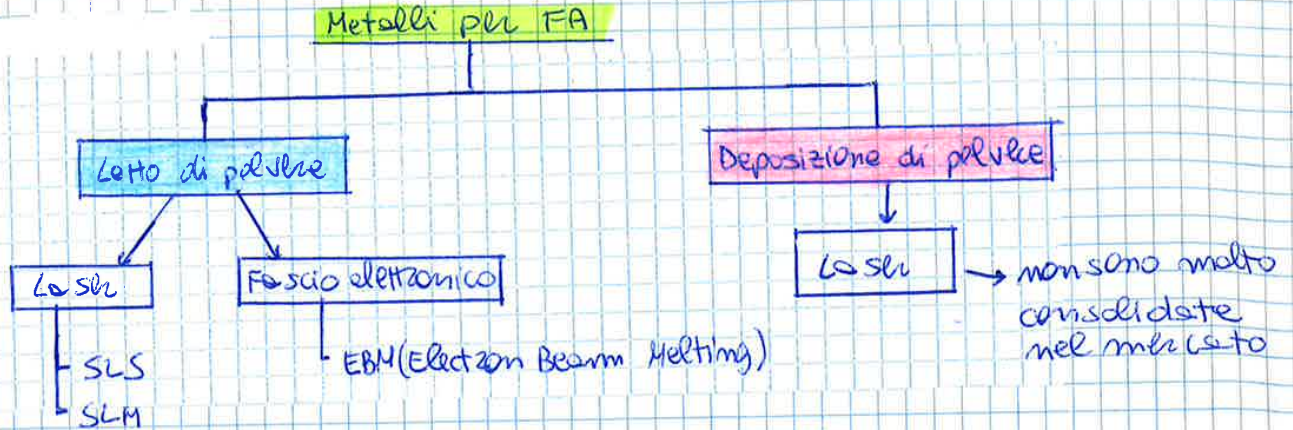 Metalli per FA
Letto di polvere
Deposizione di polvere
Laser
Fascio elettronico
Laser
→ non sono molto
consolidate
nel mercato
SLS
EBM (Electron Beam Melting)
SLM